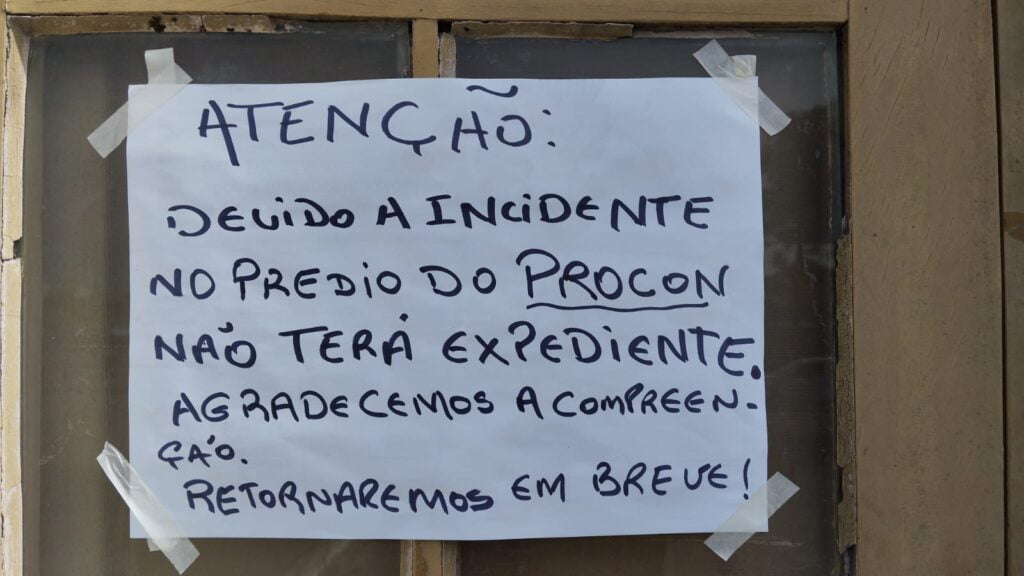 ATENÇÃO:
DEVIDO A INCIDENTE
NO PREDIO DO PROCON
NÃO TERÁ EXPEDIENTE.
AGRADECEMOS A COMPREEN-
ÇÃO.
RETORNAREMOS EM BREVE!